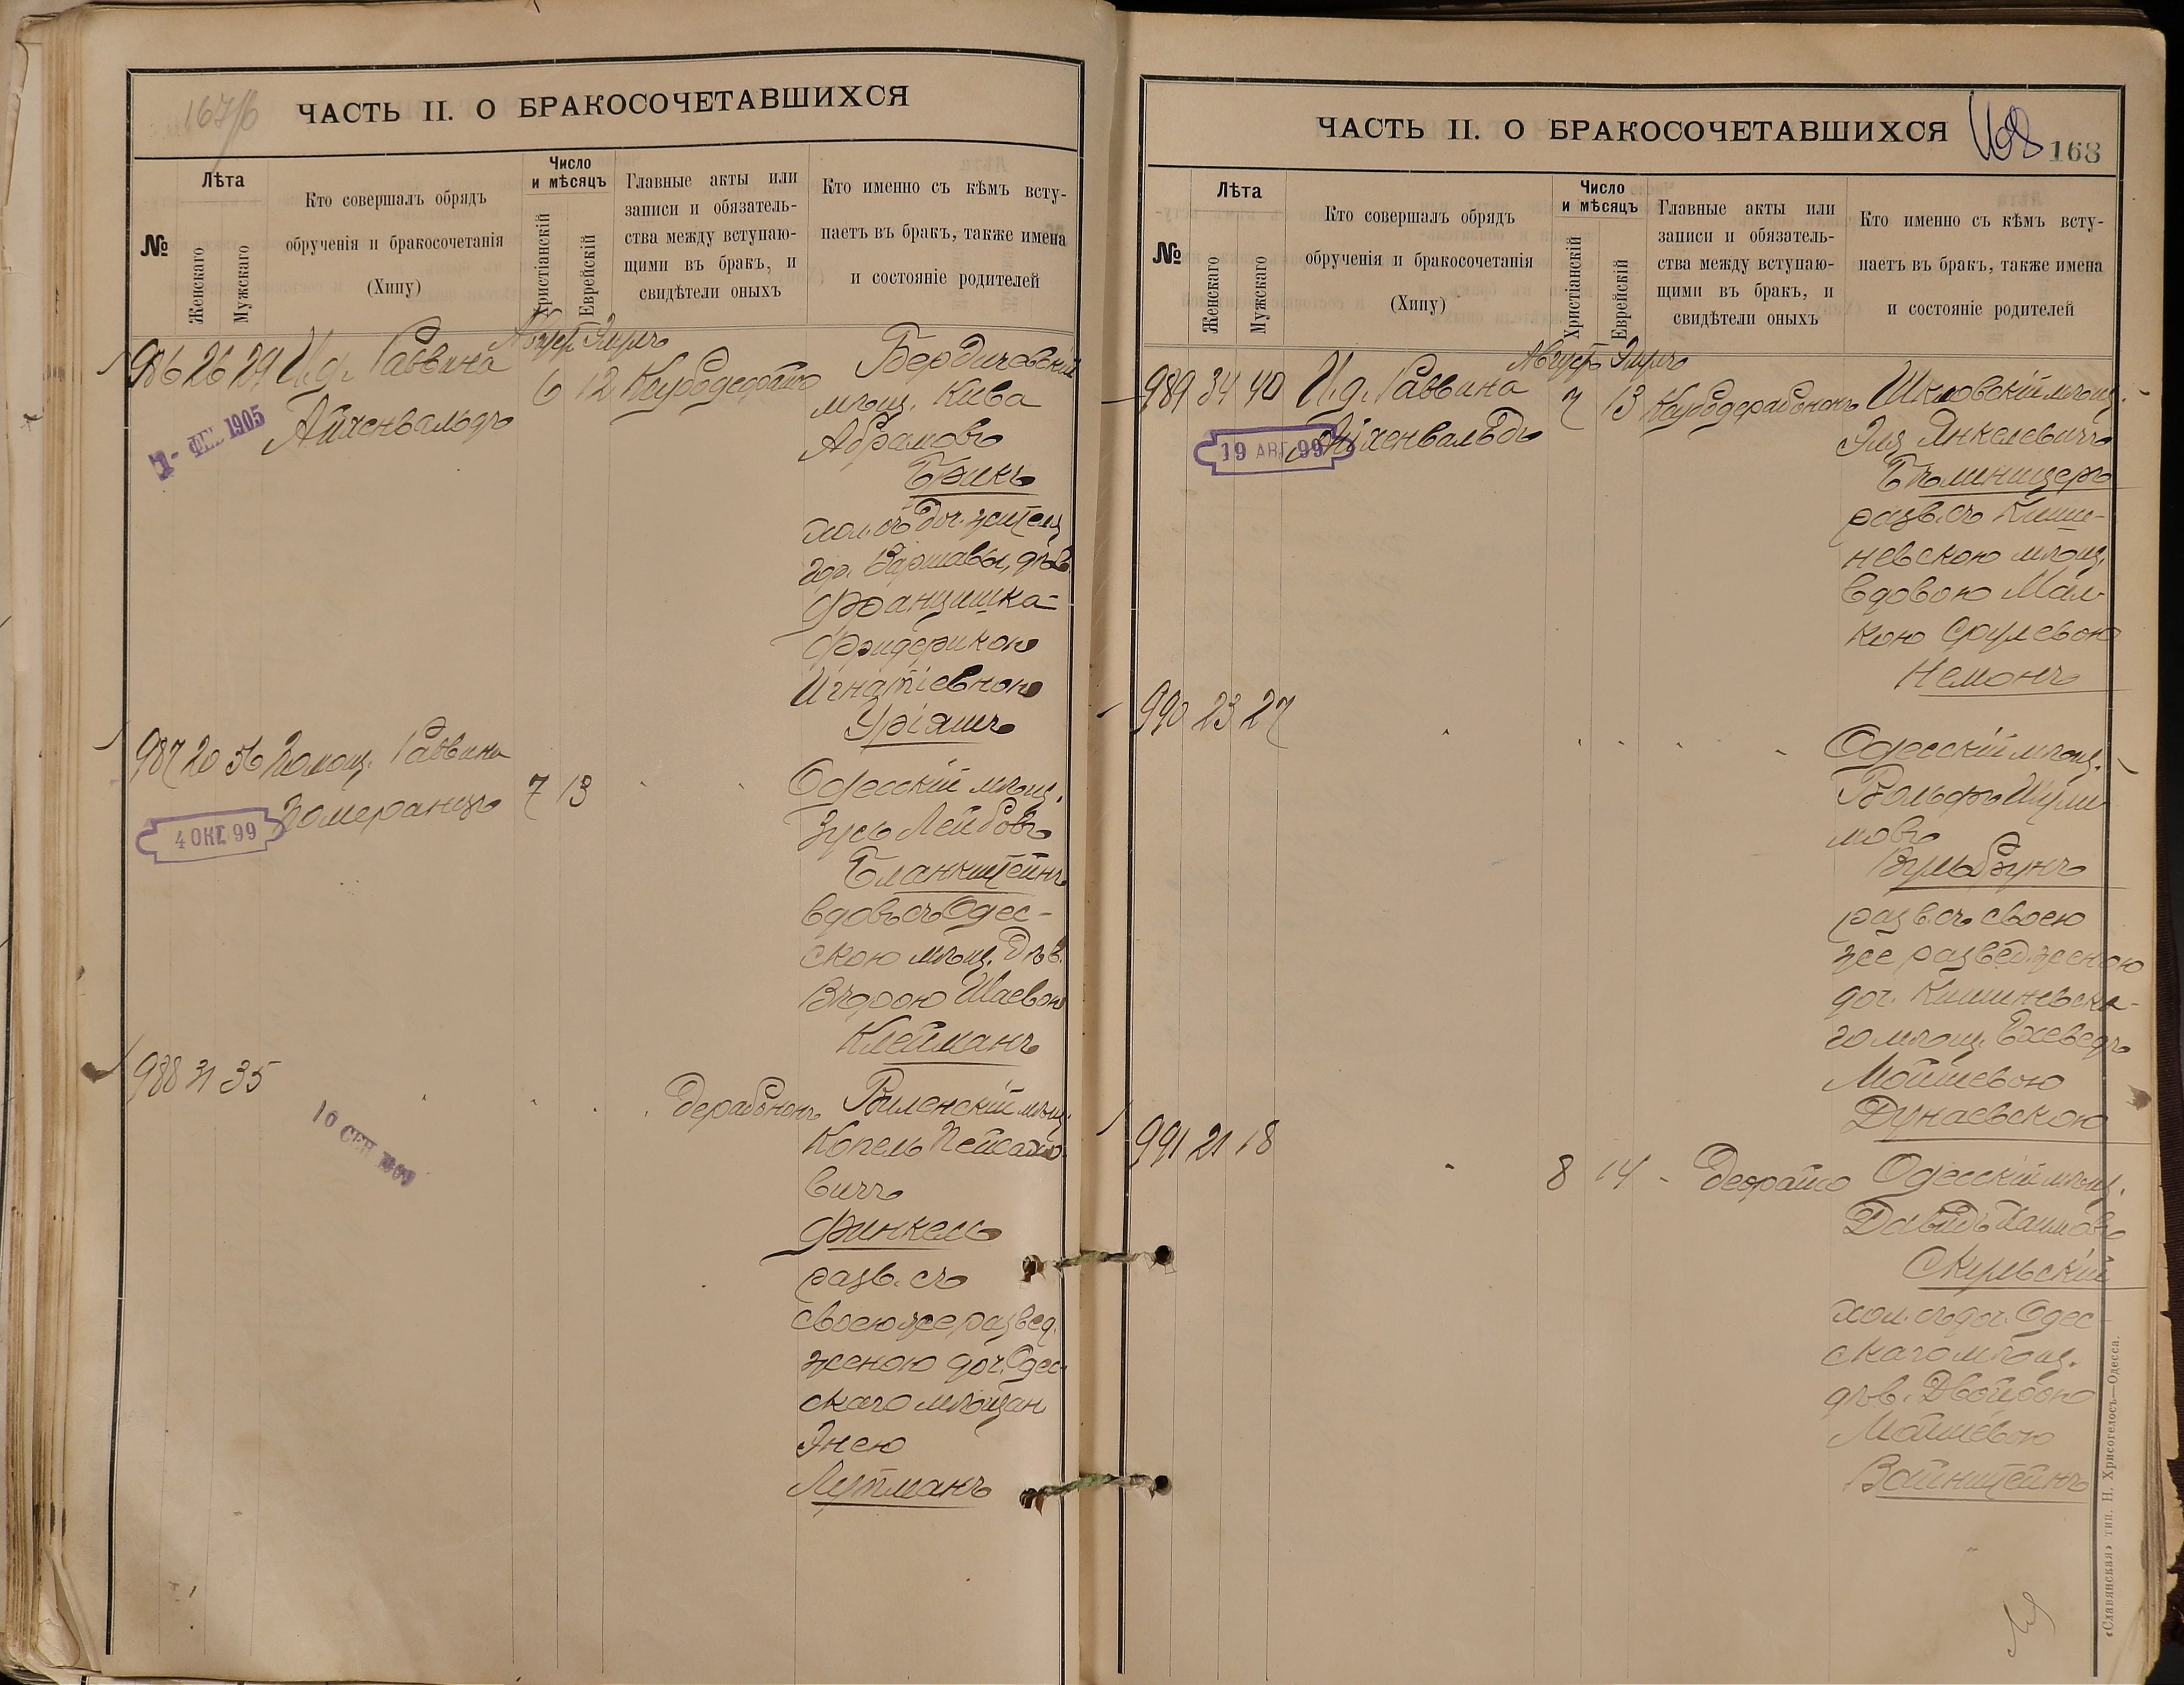 167/б
ЧАСТЬ II. О БРАКОСОЧЕТАВШИХСЯ
№
Лѣта
Женскаго
Мужскаго
Кто совершалъ обрядъ
обрученія и бракосочетанія
(Хипу)
Число
и мѣсяцъ
Христіанскій
Еврейскій
Главные акты или
записи и обязатель-
ства между вступаю-
щими въ бракъ, и
свидѣтели оныхъ
Кто именно съ кѣмъ всту-
паетъ въ бракъ, также имена
и состояніе родителей
986 26 29 И.д. Раввина
Айхенвальдъ
Августъ Элулъ
6 12
1- ФЕВ 1905
Бердичевскій
мѣщ. Кива
Абрамовъ
Брикъ
хол. съ доч. жителя
гор. Варшавы, дѣв.
Францишка-
Фридерикою
Игнатіевною
Уріяшъ
987 20 56 Помощ. Раввина
Померанцъ 7 13
4 ОКТ 99
Одесскій мѣщ.
Зусь Лейбовъ
Бланкштейнъ
вдов. съ Одес-
скою мѣщ. Дѣв.
Вѣрою Шаевою
Клейманъ
988 31 35
10 СЕН
Дерабононъ
Виленскій мѣщ.
Копель Пейсахо-
вичъ
Финкель
разв. съ
своею же развед.
женою доч. Одес-
скаго мѣщан
Энею
Лутманъ
ЧАСТЬ II. О БРАКОСОЧЕТАВШИХСЯ
168
168
№
Лѣта
Женскаго
Мужскаго
Кто совершалъ обрядъ
обрученія и бракосочетанія
(Хипу)
Число
и мѣсяцъ
Христіанскій
Еврейскій
Главные акты или
записи и обязатель-
ства между вступаю-
щими въ бракъ, и
свидѣтели оныхъ
Кто именно съ кѣмъ всту-
паетъ въ бракъ, также имена
и состояніе родителей
989 34 40 И.д. Раввина
Айхенвальдъ
Августъ Элулъ
7 13
19 АВГ 99
Шкловскій мѣщ.
Эля Янкелевичъ
Бѣлиницеръ
разв. съ Киши-
невскою мѣщ.
вдовою Мал-
кою Срулевою
Немонъ
990 23 27
Одесскій мѣщ.
Вольфъ Шули-
мовъ
Вульбрунъ
разв. съ своею
же развед. женою
доч. Кишиневска-
го мѣщ. Ехеведъ
Мойшевою
Дунаевскою
991 21 18
8 14 - Деорайсо
Одесскій мѣщ.
Давидъ Хаимовъ
Скульскій
хол. съ доч. Одес-
скаго мѣщ.
дѣв. Двойрою
Мойшевою
Вайнштейнъ
«Славянская» тип. Н. Хрисогелосъ—Одесса.